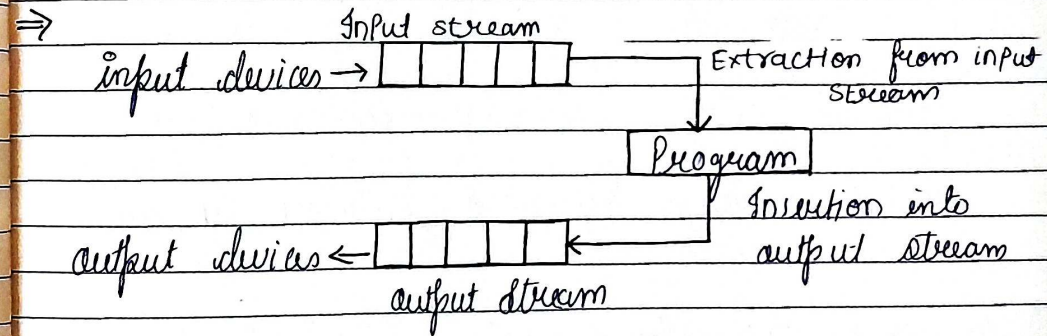 ⇒ Input stream
input devices → Extraction from input
stream
Program
Insertion into
output devices ← output stream
output stream